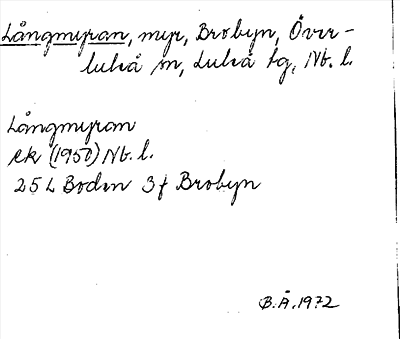 Långmyran, myr, Brobyn, Över-
luleå sn, Luleå tg, Nb. l.
Långmyran
ek (1950) Nb. l.
25 L Boden 3f Brobyn
B.Å. 1972